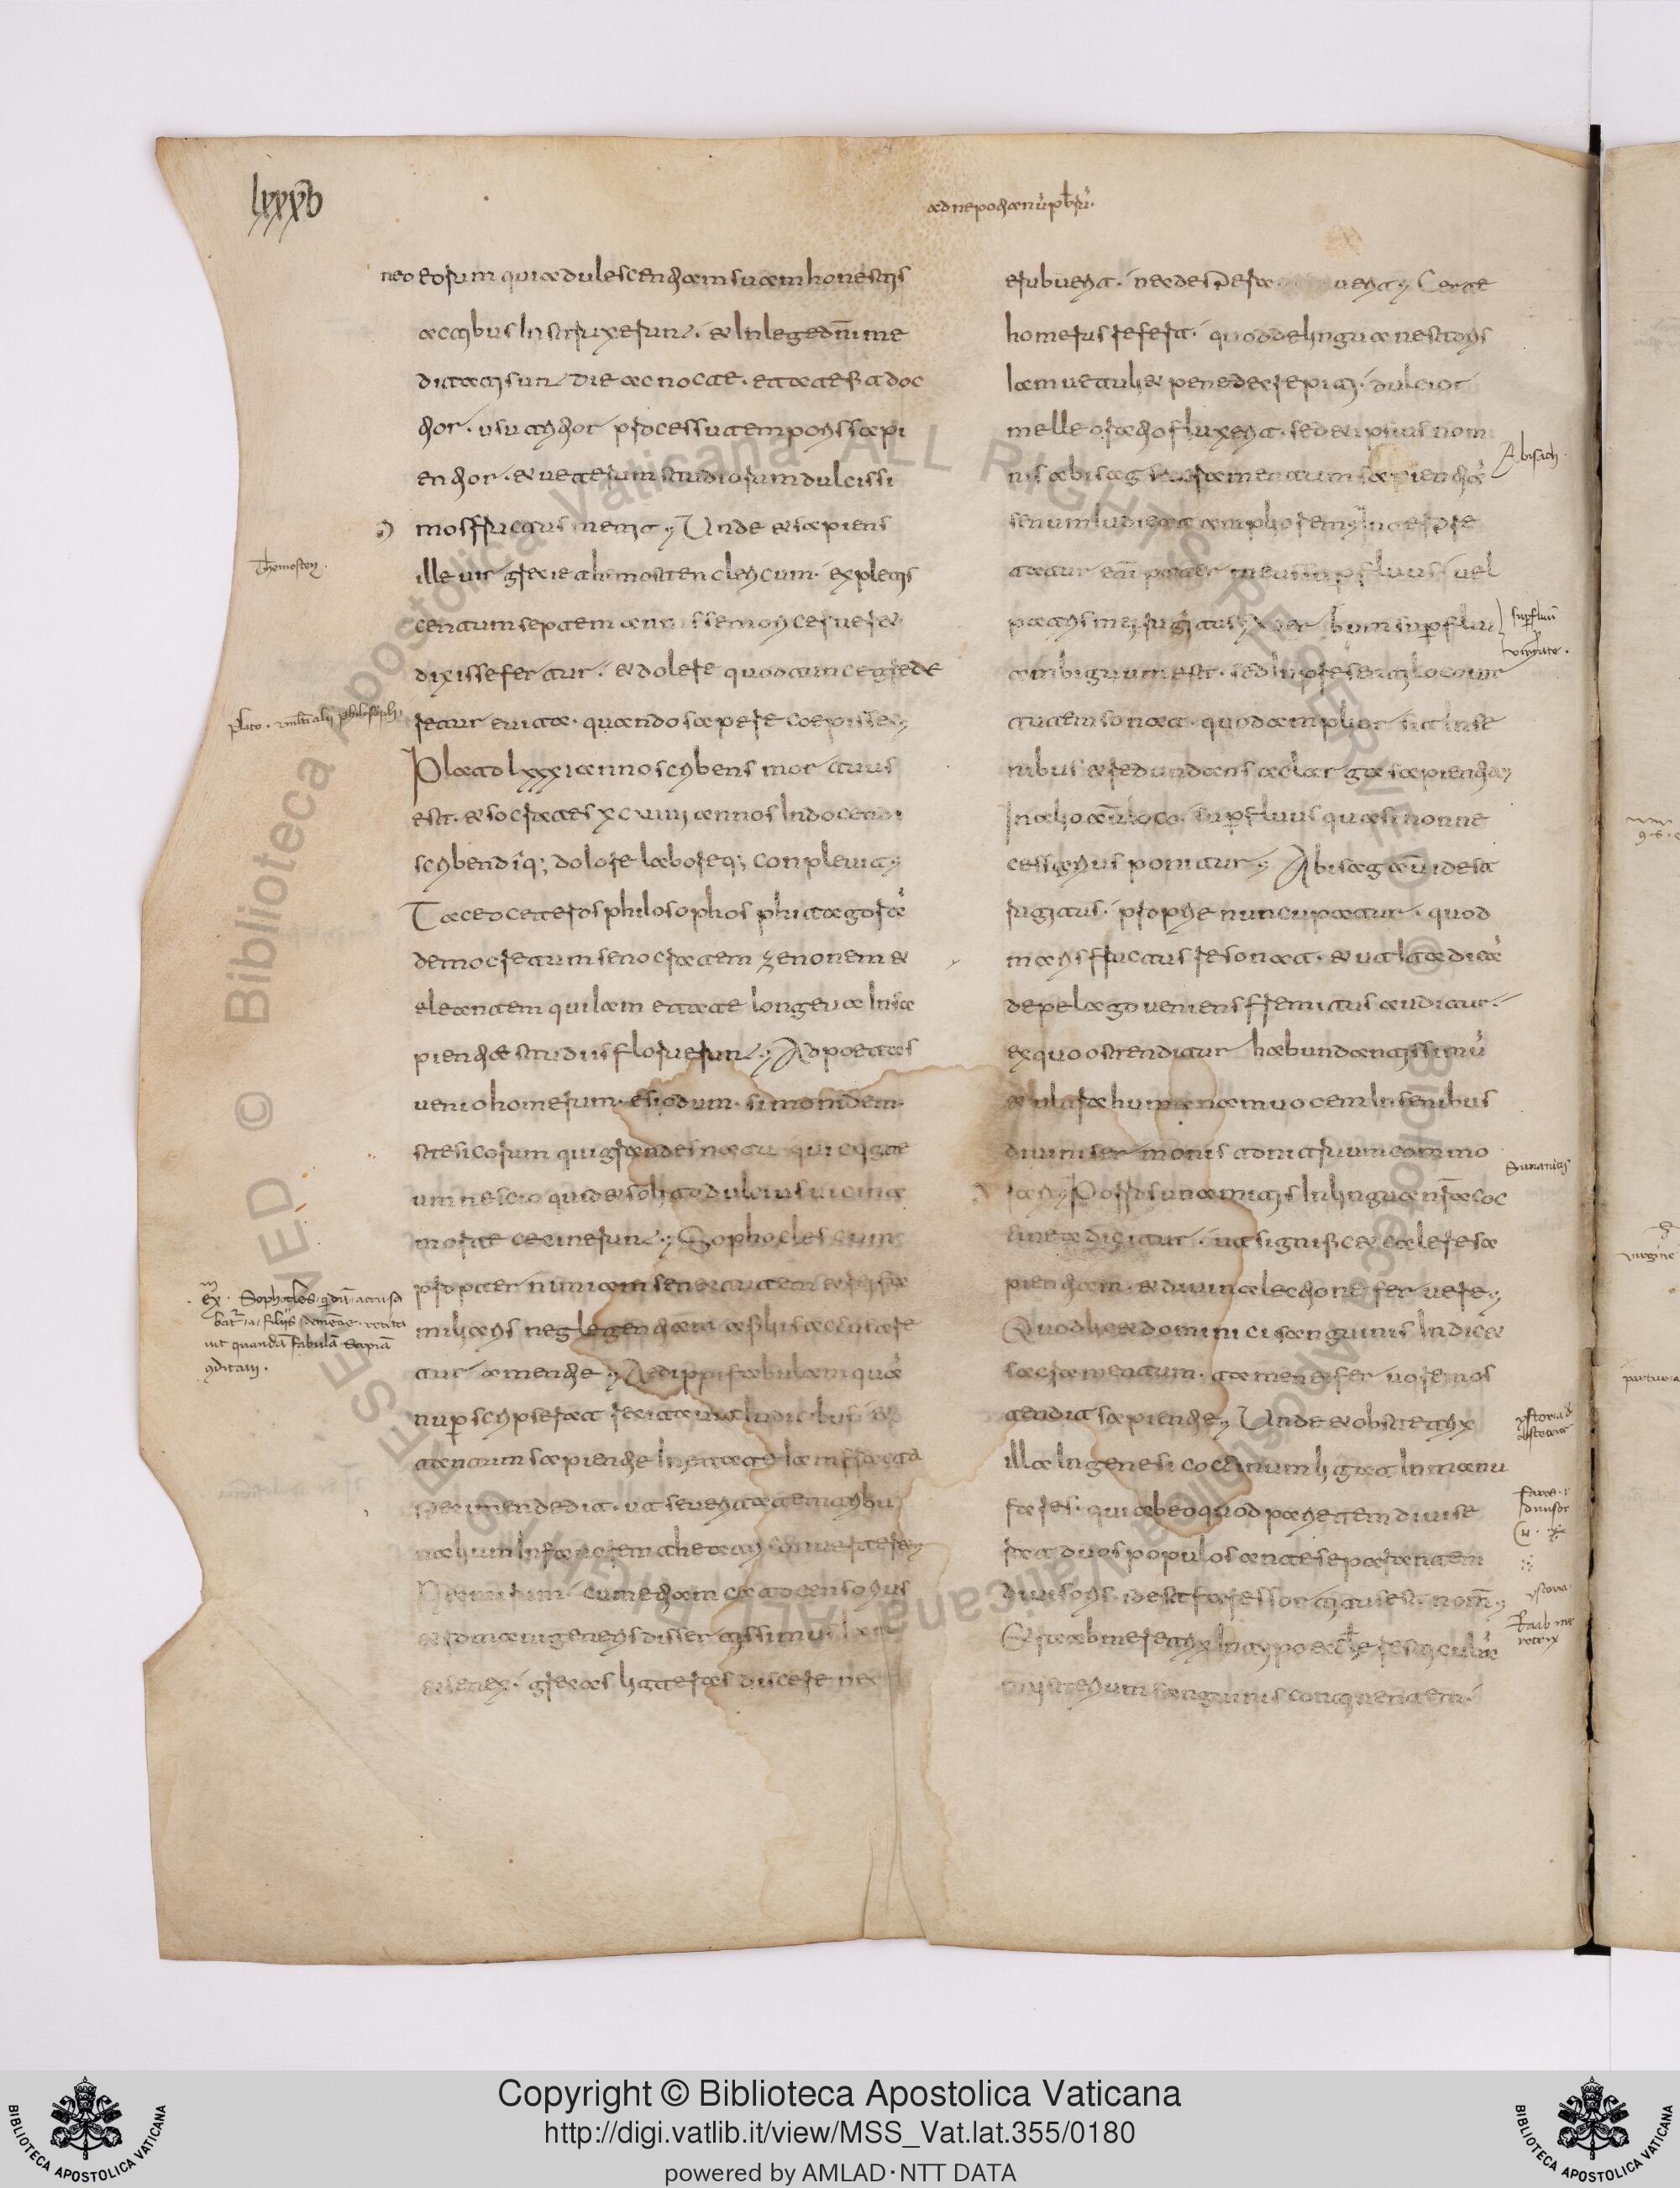 lxxxv
ad nepotianū pb̄rū.
neo eorum qui adulescentiam suam honestis
artibus Instruxerunt. & In lege dn̄i me
ditati sunt die ac nocte. etate fit doc
tior. usu tritior processu temporis sapi
entior. & ueterum studiorum dulcissi
mos fructus metit; Unde & sapiens
ille uir greciae themosten clericum. expletis
centum septem annis se mori cerneret
dixisse fertur. & dolere quod tunc egrede
retur e uita. quando sapere coepisset;
Plato lxxxi anno scribens mortuus
est. & socrates xcviiii annos In docendi
scribendiq; dolore laboreq; conpleuit;
Taceo ceteros philosophos phitagorā
democretum senocratem zenonem &
eleantem qui iam etate longeua In sa
pientiae studiis floruerunt; Ad poetas
uenio homerum. esiodum. simonidem.
stesicorum qui grandes natu
um nescio quid & solito dulcius uicina
morte cecinerunt; Sophocles cum
propter nimiam senectutem & rei fa
miliaris neglegentiam a filiis accusare
tur amentie; Aedippi fabulam quā
nup̄ scripserat recitauit iudicibus &
tantum sapientie In etate iam fracta
specimen dedit. ut seueritatem tribu
nalium In fauorem theatri conuerteret;
Nec mirum. cum etiam cato censorius
romani generis disertissimus
& senex. grecas litteras discere nec
erubuerit. nec desperauerit; Certe
homerus refert. quod de lingua nestoris
iam uetuli & pene decrepiti. dulcior
melle oratio fluxerit. sed & ipsius nomi
nis abisag sacramentum sapientiā
senum Indicat ampliorem; Interpre
tatur eni pater meus supfluus. uel
patris mei rugitus; Uerbum sup̄fluū
ambiguum est. sed In presenti loco uir
tutem sonat. quod amplior sit In se
nibus & redundans ac larga sapientia;
In alio aūt loco. sup̄fluus quasi non ne
cessarius ponitur; Abisag aūt idest
rugitus. proprie nuncupatur. quod
maris fluctus resonat. & ut ita dicā
de pelago ueniens fremitus auditur.
ex quo ostenditur habundantissimū
& ultra humanam uocem In senibus
diuini sermonis tonitruum commo
rari; Porro sunamitis In lingua nr̄a coc
cinea dicitur. ut significet calere sa
pientiam. & diuina lectione feruere;
Quod licet dominici sanguinis Indicet
sacramentum. tamen & feruorem os
tendit sapientie; Unde & obstetrix
illa In genesi coccinum ligat In manu
fares. qui ab eo quod parietem diuise
rat duos populos ante separantem
diuisoris. idest fares sortitus est nom̄;
Et raab meretrix In typo eccl̄e resticulā
mysterium sanguinis continentem.
Themosten.
Plato. multi alij philosophi.
Ex. Sophocles
nt quandā fabulā
9ditam.
Abisach
supfluū
Sunamitis
Fares. i
diuisor
ystoria
Raab me
retrix
Copyright © Biblioteca Apostolica Vaticana
http://digi.vatlib.it/view/MSS_Vat.lat.355/0180
powered by AMLAD·NTT DATA
BIBLIOTECA APOSTOLICA VATICANA
BIBLIOTECA APOSTOLICA VATICANA